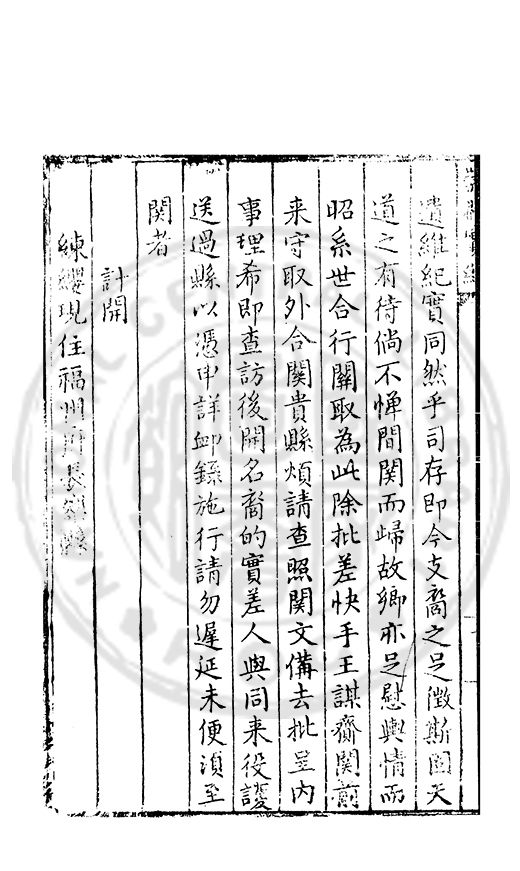 遺維紀實同然乎司存即今支裔之足徵斯固天
道之有待倘不憚間関而歸故鄉亦足慰輿情而
昭系世合行關取為此除批差快手王謀齎関前
来守取外合關貴縣煩請查照関文備去批呈内
事理希即查訪後開名裔的實差人與同来役護
送過縣以憑申詳御録施行請勿遲延未便湏至
関者
計開
練纓現住福州府長